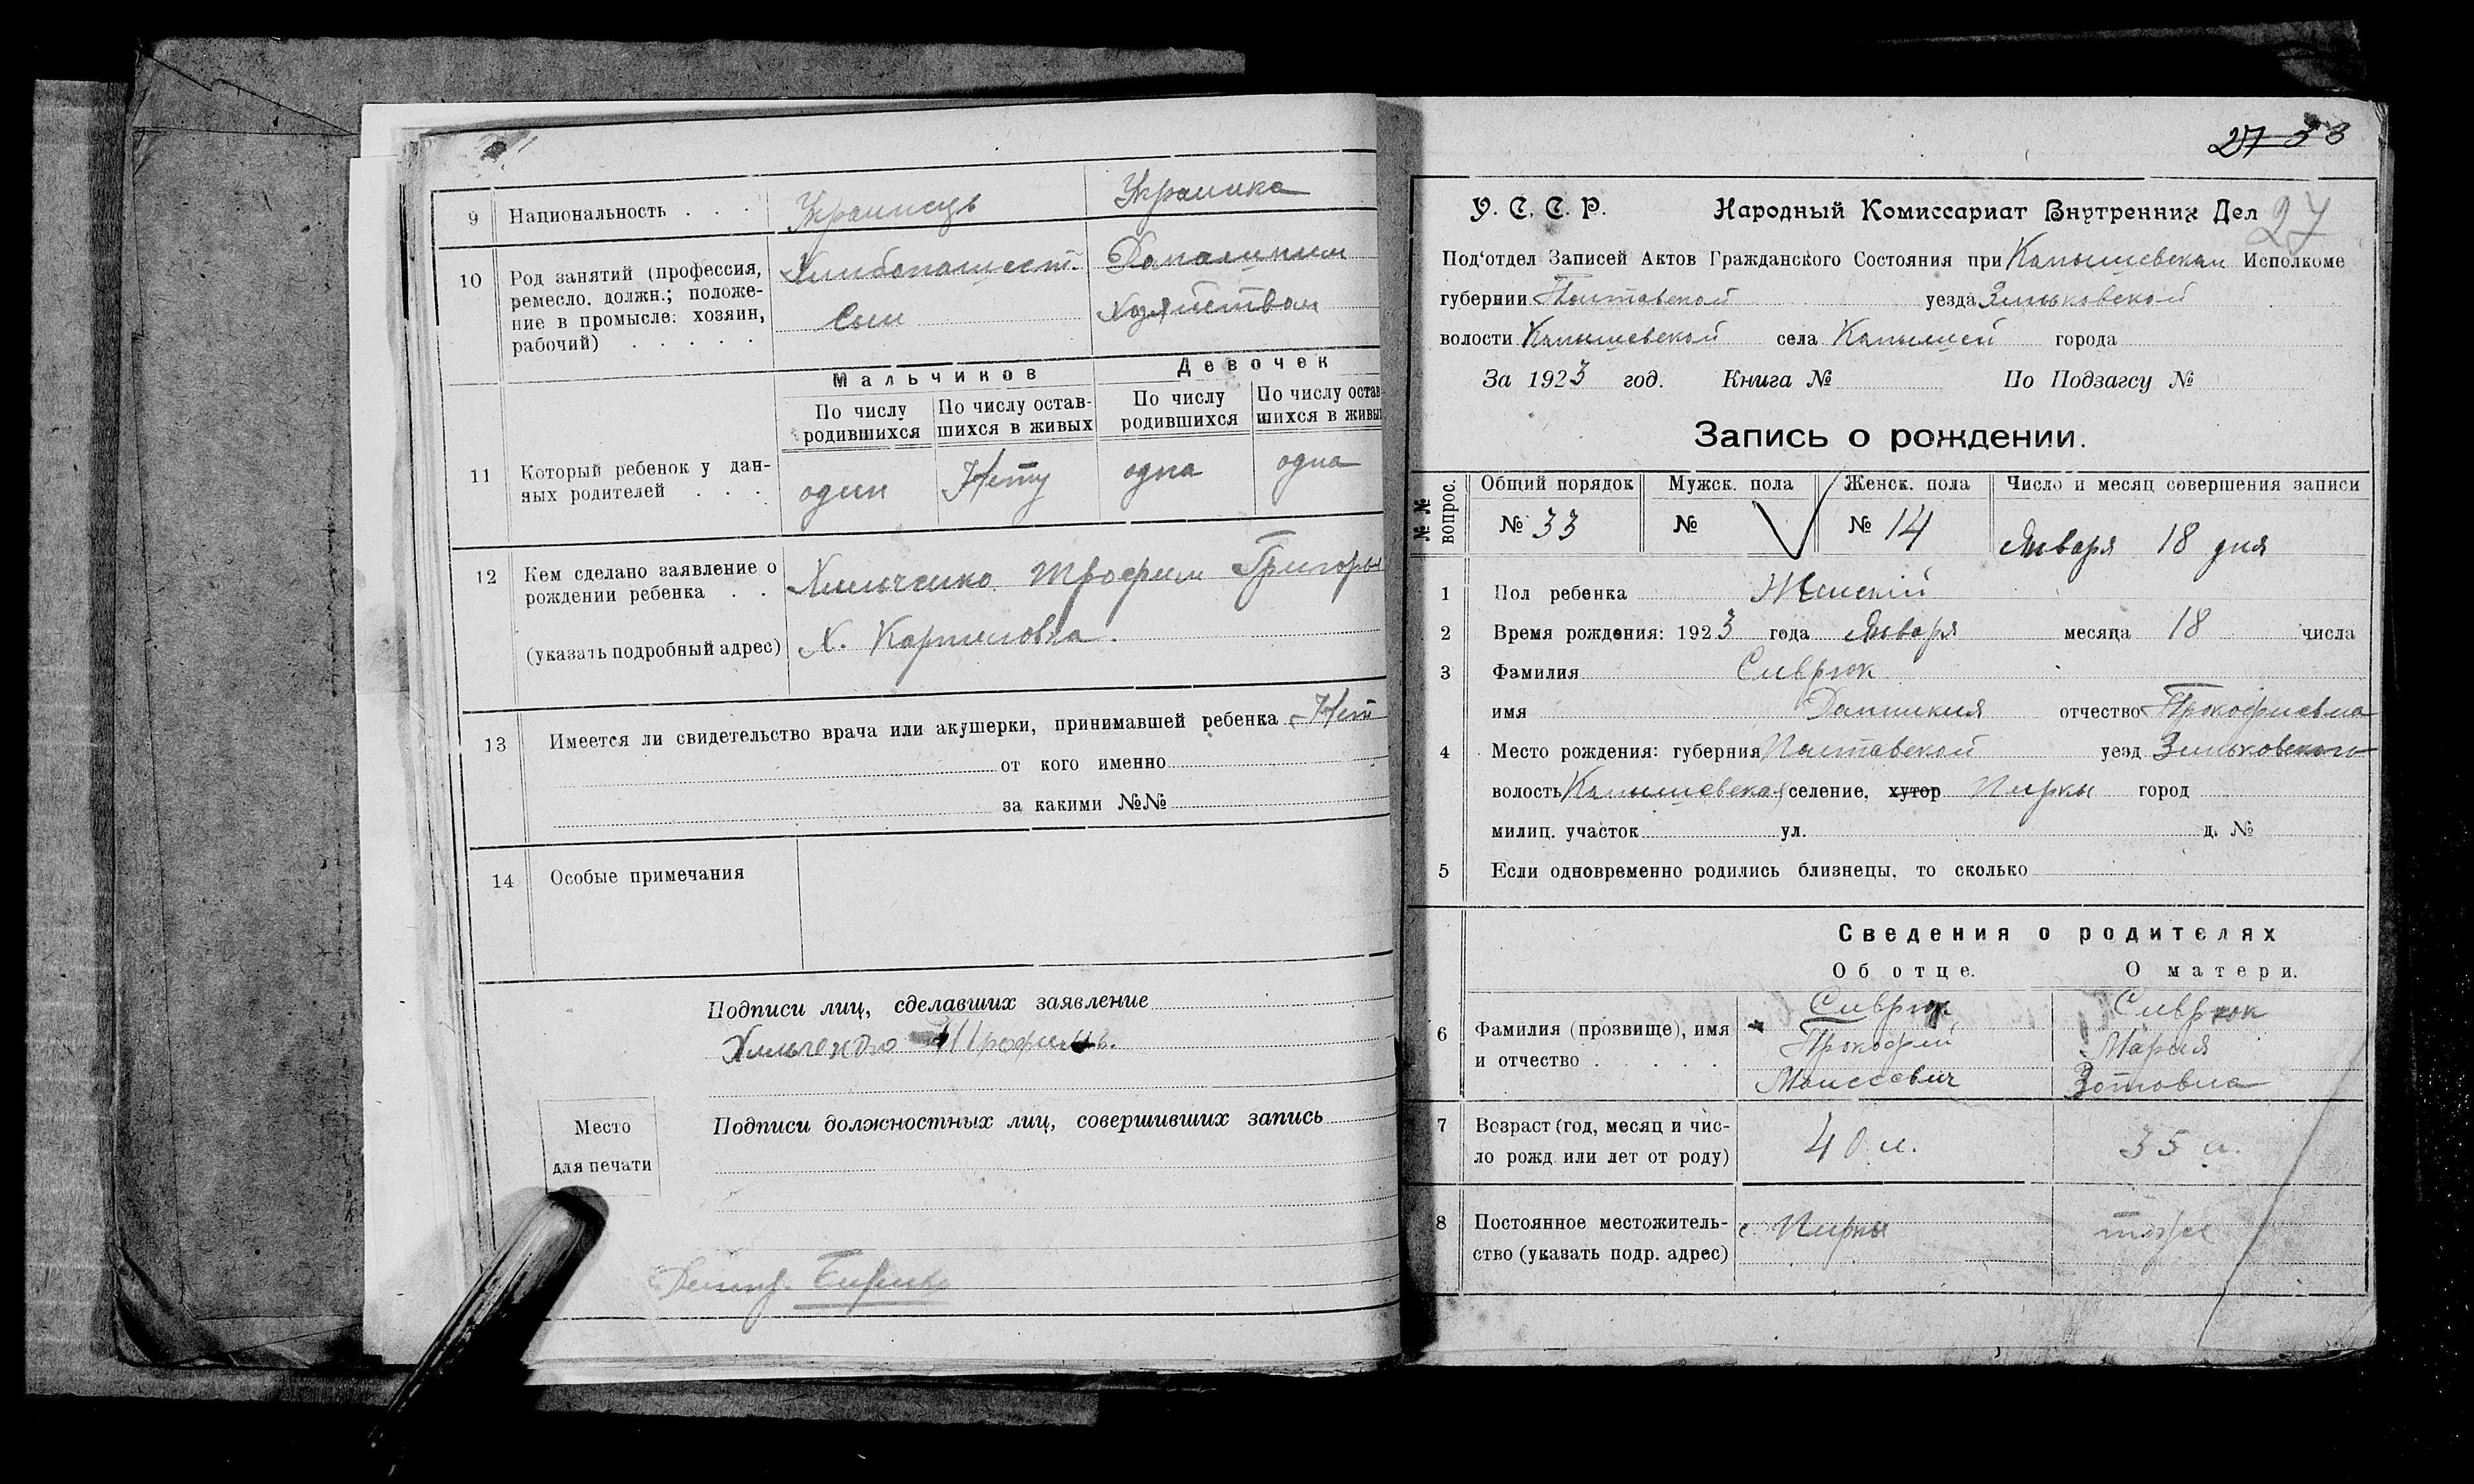 9 Национальность . . . Украинець Украинка
10 Род занятий (профессия, Хлибопашест. Домашним
ремесло. должн.; положе-
ние в промысле: хозяин, Сын Хозяйством
рабочий) . . . . .
Мальчиков Девочек
По числу родившихся По числу остав- шихся в живых По числу родившихся По числу остав- шихся в живы
11 Который ребенок у дан-
ных родителей . . . один Нету одна одна
12 Кем сделано заявление о Хильченко Трофим Григорьи
рождении ребенка . .
(указать подробный адрес) Х. Карпиловка.
13 Имеется ли свидетельство врача или акушерки, принимавшей ребенка Нет
от кого именно
за какими №№
14 Особые примечания
Подписи лиц, сделавших заявление
Хильченко
Место
для печати
Подписи должностных лиц, совершивших запись
27 33
У. С. С. Р. Народный Комиссариат Внутренних Дел 27
Под'отдел Записей Актов Гражданского Состояния при Камышевском Исполкоме
губернии Полтавской уезда Зиньковской
волости Камышевской села Камышей города
За 1923 год. Книга № По Подзагсу №
Запись о рождении.
№№ вопрос. Общий порядок Мужск. пола Женск. пола Число и месяц совершения записи
№ 33 № № 14 Января 18 дня
1 Пол ребенка Женский
2 Время рождения: 1923 года Января месяца 18 числа
3 Фамилия Сиврюк
имя отчество Прокофиевна
4 Место рождения: губерния Полтавской уезд Зиньковского
волость Камышевская селение, хутор Пирки город
милиц. участок ул. д. №
5 Если одновременно родились близнецы, то сколько
Сведения о родителях
Об отце. О матери.
Сиврюк Сиврюк
6 Фамилия (прозвище), имя Прокофий Мария
и отчество . . . . . Моисеевич Зотовна
7 Возраст (год, месяц и чис-
ло рожд или лет от роду) 40 л. 35 л.
8 Постоянное местожитель- с. Пирки тоже
ство (указать подр. адрес)